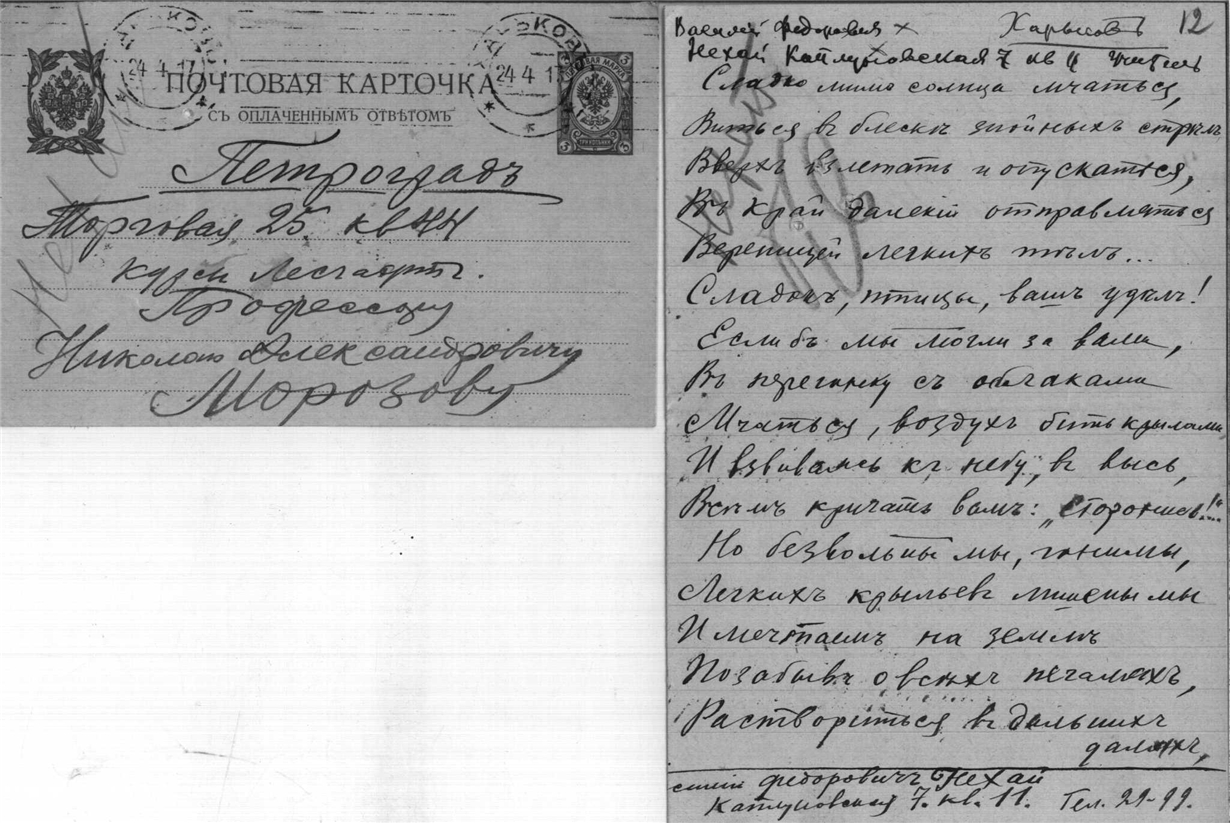 ХАРЬКОВЪ
24 4 17
ХАРЬКОВЪ
24 4 17
ПОЧТОВАЯ КАРТОЧКА
СЪ ОПЛАЧЕННЫМЪ ОТВѢТОМЪ
ПОЧТОВАЯ МАРКА
3 3
ТРИ КОПѢЙКИ
Петроградъ
Торговая 25 кв 44
Курсы Лесгафта.
Профессору
Николаю Александровичу
Морозову
Харьковъ 12
Василій Федоровичъ
Нехай 7 кв 11 учитель
Сладко мимо солнца мчаться,
Виться въ блескѣ знойныхъ стрѣлъ
Вверхъ взлетать и опускаться,
Въ край далекій отправляться
Вереницей легкихъ тѣлъ...
Сладокъ, птицы, вашъ удѣлъ!
Если бъ мы могли за вами,
Въ перегонку съ облаками
Мчаться, воздухъ бить крылами
И взвиваясь къ небу, въ высь,
Всѣмъ кричать вамъ: „Сторонись!..“
Но безвольны мы, гонимы,
Легкихъ крыльевъ лишены мы
И мечтаемъ на землѣ
Позабывъ о всѣхъ печаляхъ,
Раствориться въ дальнихъ
даляхъ,
силій Федоровичъ Нехай
7. кв. 11. Тел. 29-99.